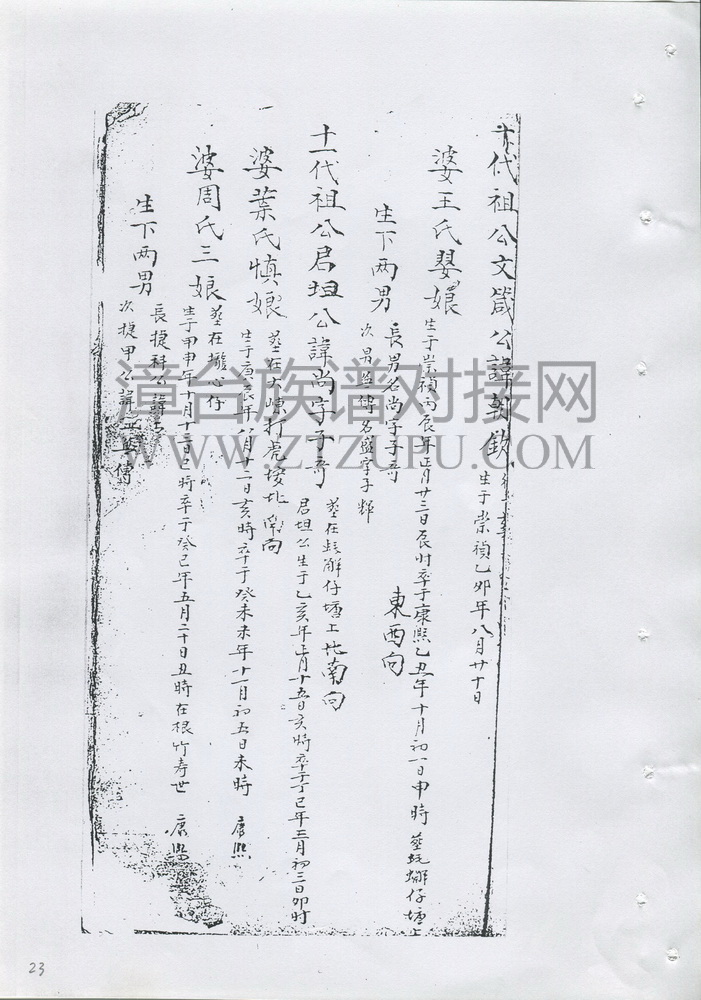 十代祖公文箴公諱朝欽
生于崇禎乙卯年八月廿十日
婆王氏娶娘
生于崇禎丙辰年正月廿三日辰时卒于康熙乙丑年十月初一日申時 塟坑蠏仔塘上
東西向
生下两男
長男名尚字子亨
次男 傳名盛字子輝
十一代祖公君坦公諱尚字子亨
塟在 蠏仔塘上地南向
君坦公生于乙亥年正月十五日亥時卒于丁巳年三月初三日卯时
婆葉氏慎娘
塟在大崠打虎 北南向
生于庚辰年八月十二日亥時卒于癸未未年十一月初五日未時 康熙
婆周氏三娘
塟在 心仔
生于甲申年十月十二日巳時卒于癸己年五月二十日丑時在根竹寿世 康熙
生下两男
長捷科公諱
次捷甲公諱 傳
漳台族谱对接网
WWW.ZTZUPU.COM
23